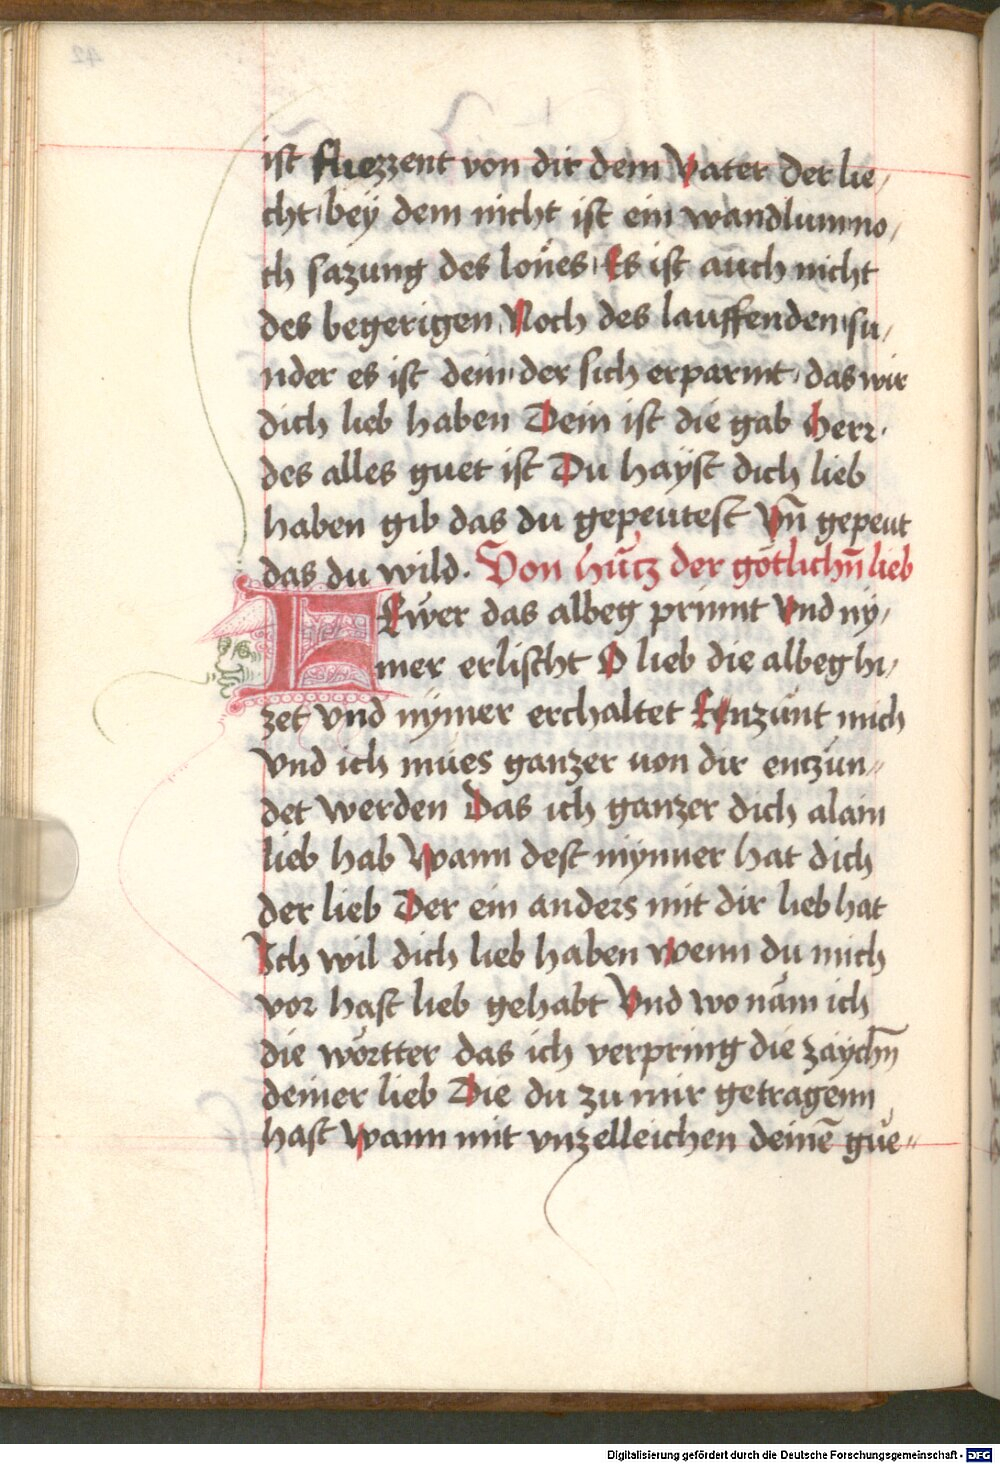 ist fliezzent von dir dem Vater der lie/
cht bey dem nicht ist ein wandlumm no/
ch sazung des loües Es ist auch nicht
des begerigen Noch des lauffenden su/
nder es ist dein der sich erparmt das wir
dich lieb haben Dein ist die gab Herr
des alles guet ist Du hayst dich lieb
haben gib das du gepeutest Vn̄ gepeut
das du wild. Von hütz der götlichn̄ lieb
FEwer das albeg prinnt Vnd ny/
mer erlischt O lieb die albeg hi/
zet vnd nymer erchaltet Enzünt mich
Vnd ich mües ganzer von dir enczün⸗
det werden Das ich ganzer dich alain
lieb hab Wann dest mynner hat dich
der lieb Der ein anders mit dir lieb hat
Ich wil dich lieb haben wenn du mich
vor hast lieb gehabt Vnd wo näm ich
die wörtter das ich verpring die zaychn̄
deiner lieb Die du zu mir getragenn
hast Wann mit vnzelleichen deinē güe⸗
Digitalisierung gefördert durch die Deutsche Forschungsgemeinschaft - DFG